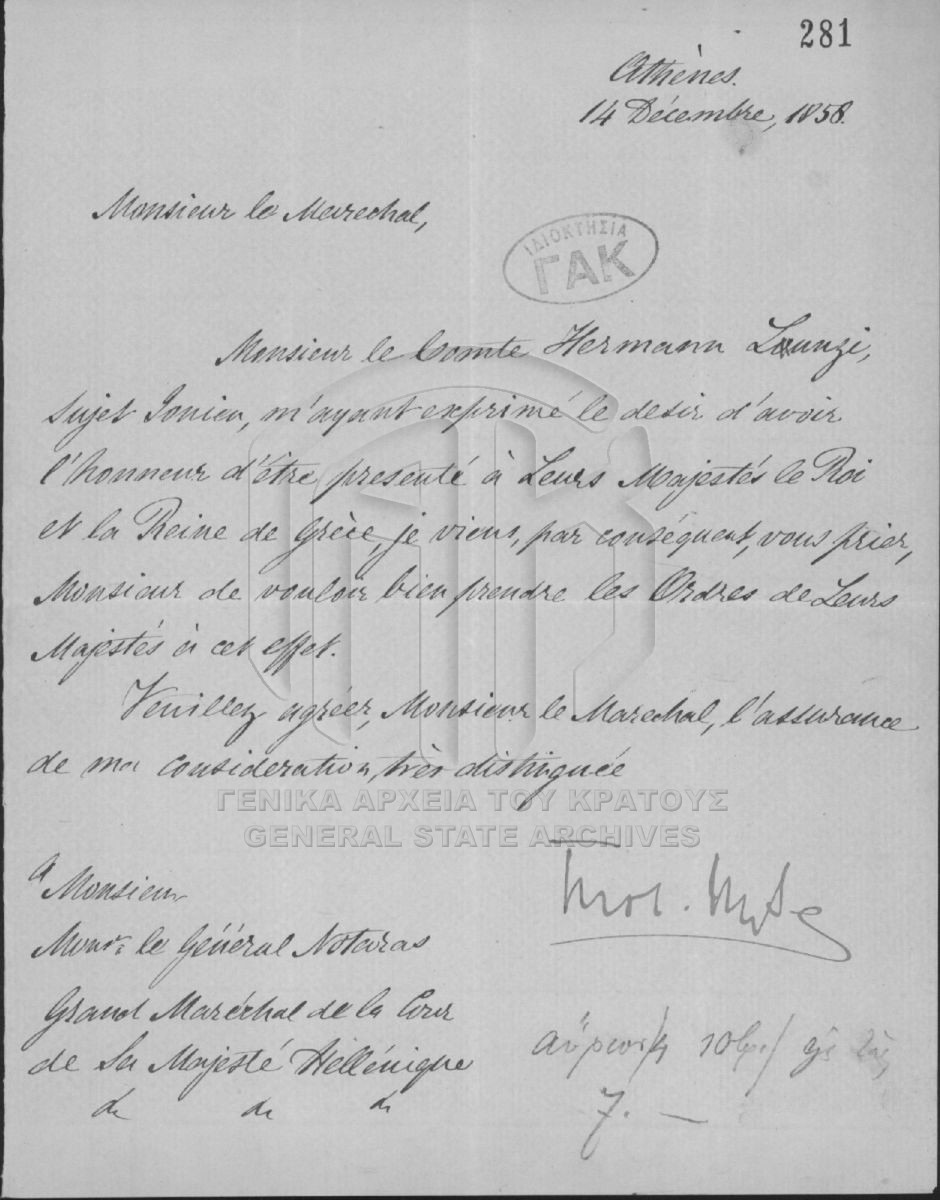 281
Athènes.
14 Décembre, 1858.
Monsieur le Marechal,
ΙΔΙΟΚΤΗΣΙΑ
ΓΑΚ
Monsieur le Comte Hermann Lunzi,
sujet Ionien, m'ayant exprimé le desir d'avoir
l'honneur d'être presenté à Leurs Majestés le Roi
et la Reine de Grèce, je viens, par conséquent, vous prier,
Monsieur de vouloir bien prendre les Ordres de Leurs
Majestés à cet effet.
Veuillez agréer, Monsieur le Marechal, l'assurance
de ma consideration, très distinguée
ΓΕΝΙΚΑ ΑΡΧΕΙΑ ΤΟΥ ΚΡΑΤΟΥΣ
GENERAL STATE ARCHIVES
A Monsieur
Monsr. le Général Notaras
Grand Maréchal de la Cour
de Sa Majesté Hellénique
&c &c &c
αὔριον
7. —